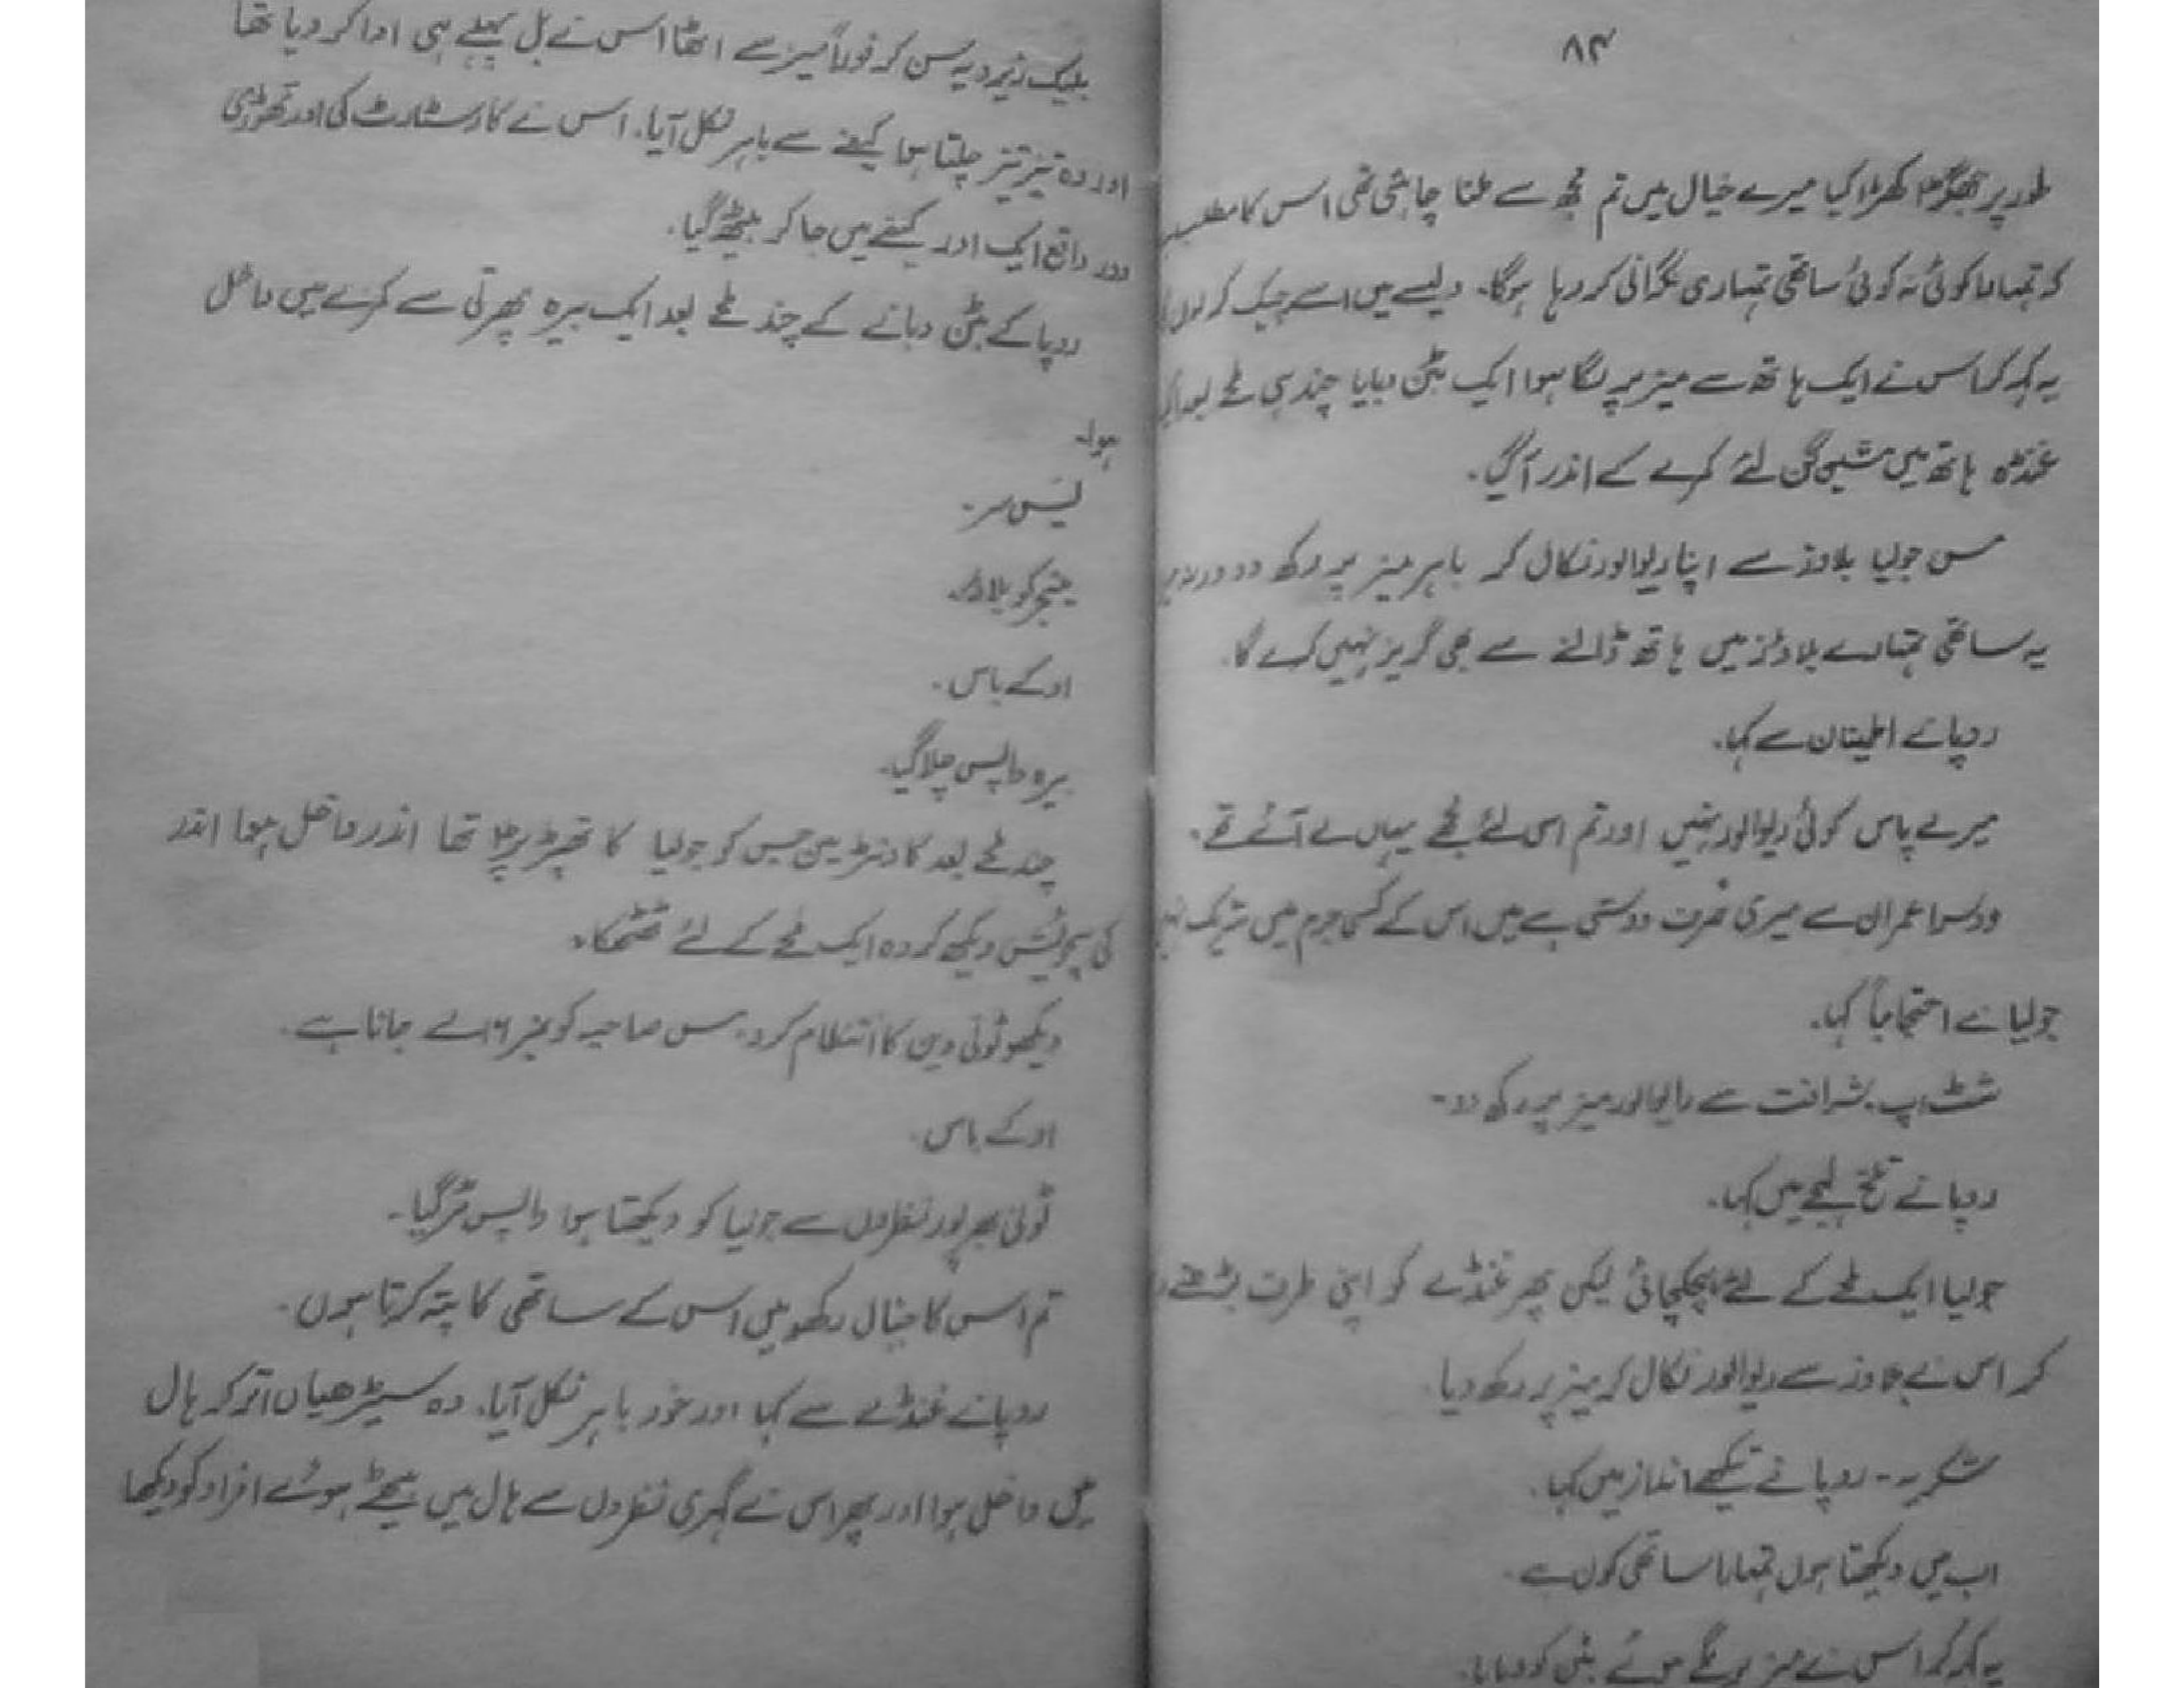 ۸۴
طور پر جھگڑا کھڑا کیا میرے خیال میں تم مجھ سے ملنا چاہتی تھی اس کا مطلب
کہ تمہارا کوئی نہ کوئی ساتھی تمہاری نگرانی کر رہا ہوگا۔ ویسے میں اسے چیک کر لوں
یہ کہہ کر اس نے ایک ہاتھ سے میز پر لگا ہوا ایک بٹن دبایا چند ہی لمحے بعد
غنڈہ ہاتھ میں مشین گن لئے کمرے کے اندر آگیا۔
مس جولیا بلاوز سے اپنا ریوالور نکال کر باہر میز پر رکھ دو ورنہ
یہ ساتھی تمہارے بلاوز میں ہاتھ ڈالنے سے بھی گریز نہیں کرے گا۔
روپا نے اطمینان سے کہا۔
میرے پاس کوئی ریوالور نہیں اور تم اس لئے مجھے یہاں لے آئے تھے۔
دوسرا عمران سے میری صرف دوستی ہے میں اس کے کسی جرم میں شریک
جولیا نے احتجاجاً کہا۔
شٹ اپ۔ شرافت سے ریوالور میز پر رکھ دو۔
روپا نے تلخ لہجے میں کہا۔
جولیا ایک لمحے کے لئے ہچکچائی لیکن پھر غنڈے کو اپنی طرف بڑھتے
کر اس نے بلاوز سے ریوالور نکال کر میز پر رکھ دیا۔
شکریہ۔۔ روپا نے تیکھے انداز میں کہا۔
اب میں دیکھتا ہوں تمہارا ساتھی کون ہے۔
یہ کہہ کر اس نے میز پر لگے ہوئے بٹن کو دبایا۔
بلیک زیرو یہ سن کر فوراً میز سے اٹھا اس نے بل پہلے ہی ادا کر دیا تھا
اور وہ تیز تیز چلتا ہوا کیفے سے باہر نکل آیا۔ اس نے کار سٹارٹ کی اور تھوڑی
دور واقع ایک اور کیفے میں جا کر بیٹھ گیا۔
روپا کے بٹن دبانے کے چند لمحے بعد ایک بیرہ پھرتی سے کمرے میں داخل
ہوا۔
یس سر۔
مینجر کو بلاؤ۔
اوکے باس۔
بیرہ واپس چلا گیا۔
چند لمحے بعد کاونٹر مین جس کو جولیا کا تھپڑ پڑا تھا اندر داخل ہوا اندر
کی سچوئیشن دیکھ کر وہ ایک لمحے کے لئے ٹھٹھکا۔
دیکھو ٹونی وین کا انتظام کرو۔ مس صاحبہ کو نمبر ۱۶ لے جانا ہے۔
اوکے باس۔
ٹونی بھرپور نظروں سے جولیا کو دیکھتا ہوا واپس مڑ گیا۔
تم اس کا خیال رکھو میں اس کے ساتھی کا پتہ کرتا ہوں۔
روپا نے غنڈے سے کہا اور خود باہر نکل آیا۔ وہ سیڑھیاں اتر کر ہال
میں داخل ہوا اور پھر اس نے گہری نظروں سے ہال میں بیٹھے ہوئے افراد کو دیکھا